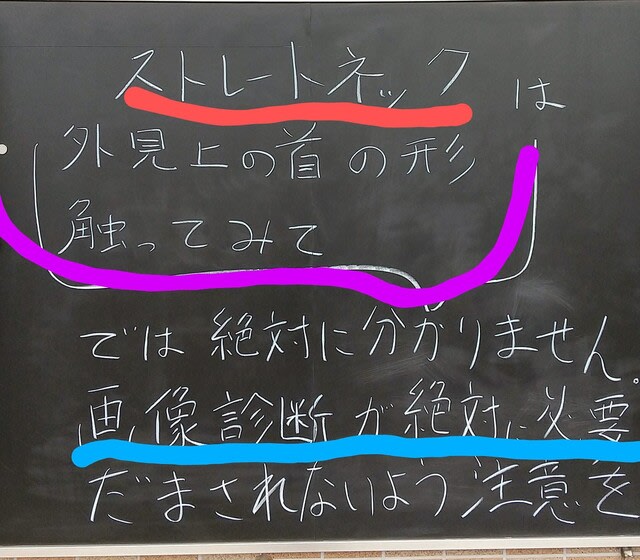 ストレートネックは
外見上の首の形
触ってみて
では絶対に分かりません。
画像診断が絶対に必要
だまされないよう注意を